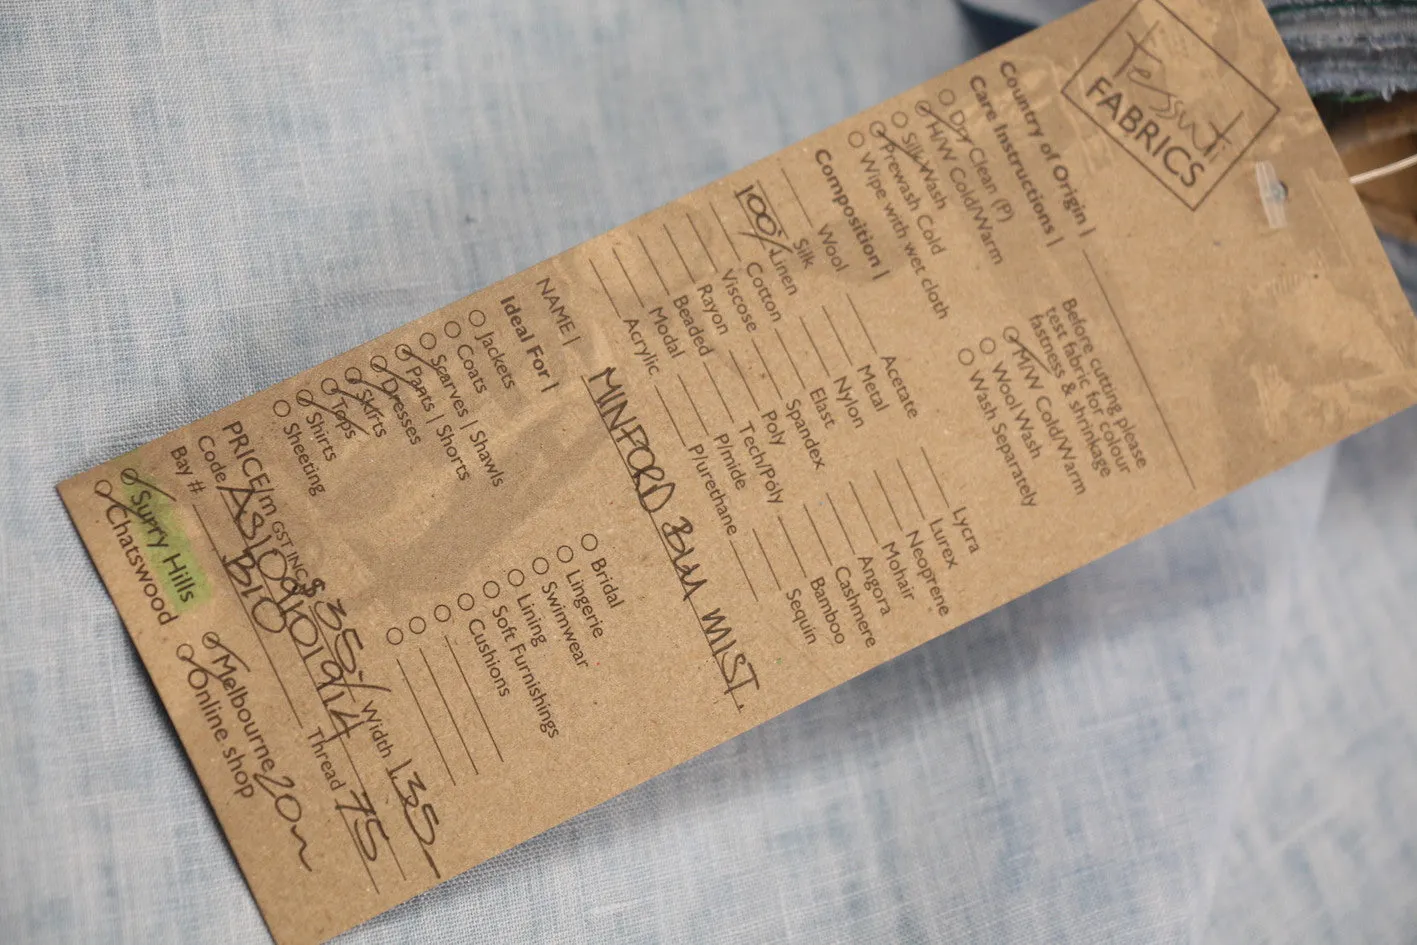 Tessuti
FABRICS
Country of Origin |
Care Instructions |
Dry Clean (P)
H/W Cold/Warm
Silk Wash
Prewash Cold
Wipe with wet cloth
Before cutting please
test fabric for colour
fastness & shrinkage
M/W Cold/Warm
Wool Wash
Wash Separately
Composition |
Wool Acetate Lycra
Silk Metal Lurex
100% Linen Nylon Neoprene
Cotton Elast Mohair
Viscose Spandex Angora
Rayon Poly Cashmere
Beaded Tech/Poly Bamboo
Modal P/mide Sequin
Acrylic P/urethane
NAME | MINFORD BLU MIST.
Ideal For |
Jackets Bridal
Coats Lingerie
Scarves | Shawls Swimwear
Pants | Shorts Lining
Dresses Soft Furnishings
Skirts Cushions
Tops
Shirts
Sheeting
PRICE/m GST INC $35/- Width 135
Code Thread 75
Bay # B10
Surry Hills Melbourne
Chatswood Online shop 20m